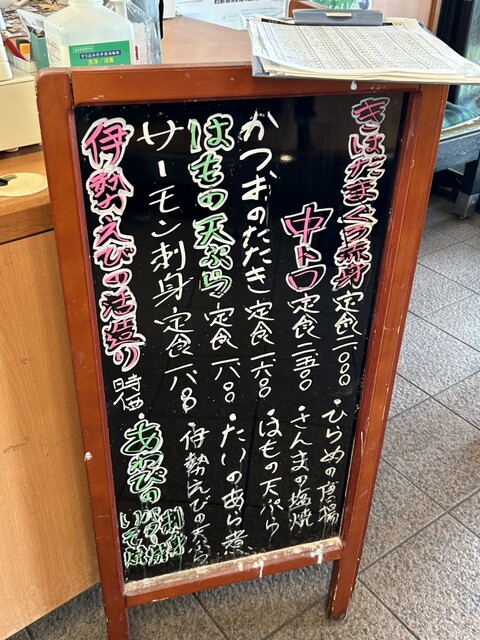 きはだまぐろ赤身 定食 二〇〇〇
中トロ 定食 二五〇〇
かつおのたたき 定食 一六〇〇
はもの天ぷら 定食 一八〇〇
サーモン刺身 定食 一八〇〇
伊勢えびの活造り 時価
・ひらめの唐揚
・さんまの塩焼
・はもの天ぷら
・たいのあら煮
・伊勢えびの天ぷら
・あわびの
刺身
バター焼
いそ焼